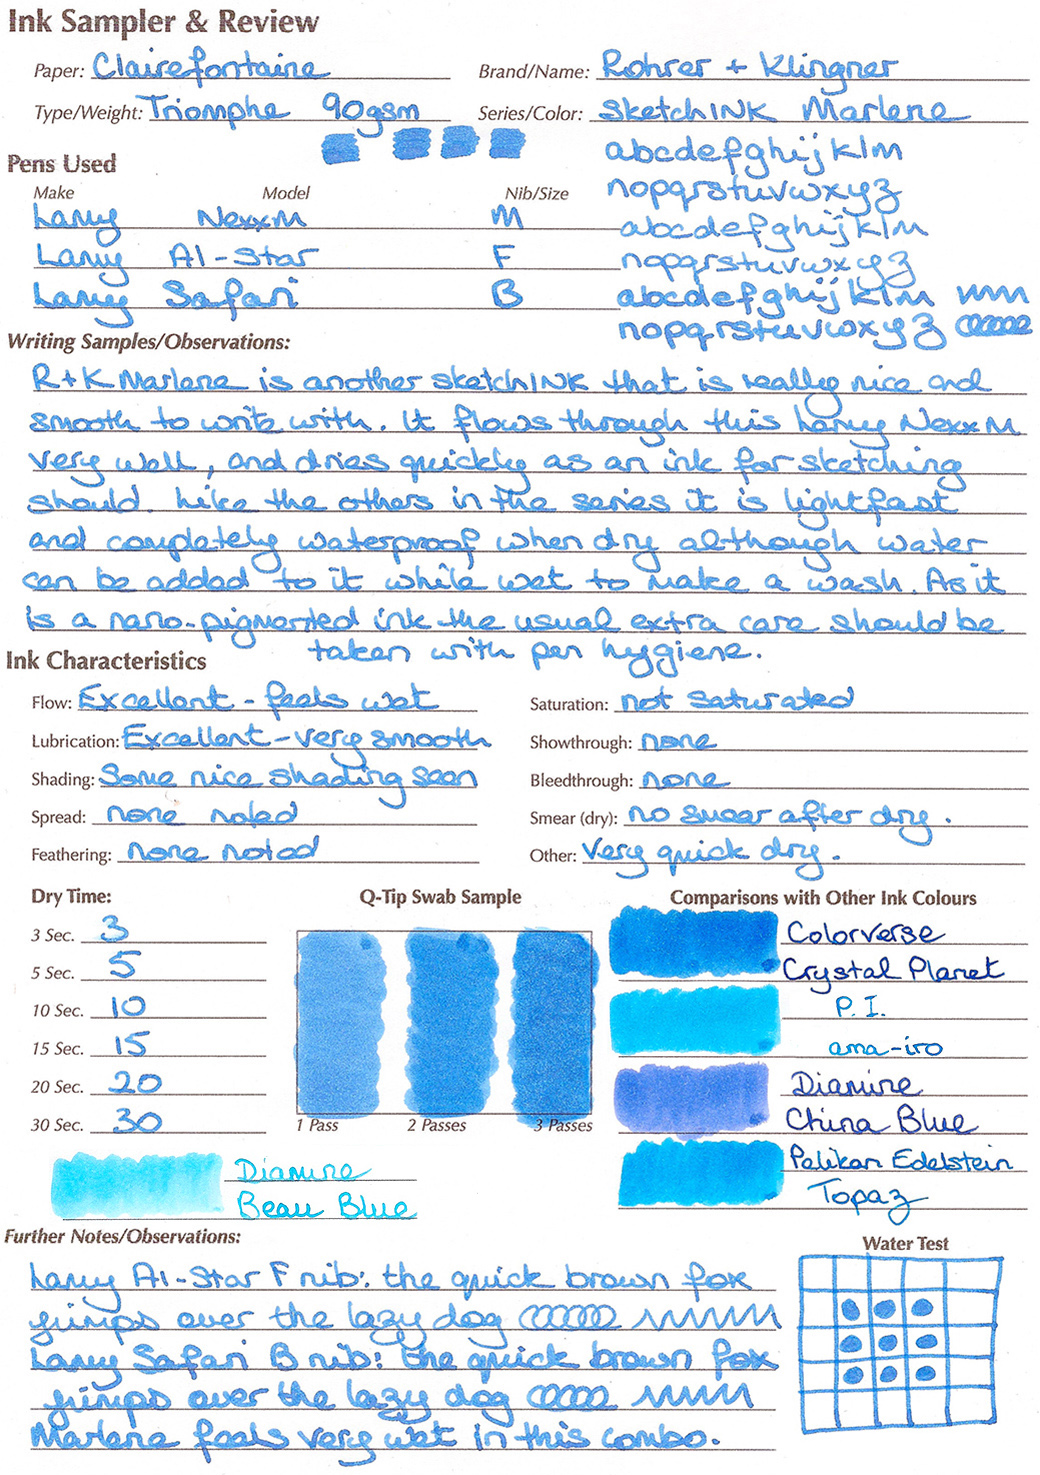 Ink Sampler & Review
Paper: Clairefontaine
Brand/Name: Rohrer + Klingner
Type/Weight: Triomphe 90gsm
Series/Color: SketchINK Marlene
abcdefghijklm
nopqrstuvwxyz
abcdefghijklm
nopqrstuvwxyz
abcdefghijklm
nopqrstuvwxyz
Pens Used
Make Model Nib/Size
Lamy Nexx M M
Lamy Al-Star F
Lamy Safari B
Writing Samples/Observations:
R+K Marlene is another sketchINK that is really nice and
smooth to write with. It flows through this Lamy Nexx M
very well, and dries quickly as an ink for sketching
should. Like the others in the series it is lightfast
and completely waterproof when dry although water
can be added to it while wet to make a wash. As it
is a nano-pigmented ink the usual extra care should be
taken with pen hygiene.
Ink Characteristics
Flow: Excellent - feels wet
Lubrication: Excellent - very smooth
Shading: Some nice shading seen
Spread: none noted
Feathering: none noted
Saturation: not saturated
Showthrough: none
Bleedthrough: none
Smear (dry): no smear after dry.
Other: Very quick dry.
Dry Time:
3 Sec. 3
5 Sec. 5
10 Sec. 10
15 Sec. 15
20 Sec. 20
30 Sec. 30
Q-Tip Swab Sample
1 Pass 2 Passes 3 Passes
Comparisons with Other Ink Colours
Colorverse
Crystal Planet
P. I.
ama-iro
Diamine
China Blue
Pelikan Edelstein
Topaz
Diamine
Beau Blue
Further Notes/Observations:
Lamy Al-Star F nib: the quick brown fox
jumps over the lazy dog
Lamy Safari B nib: the quick brown fox
jumps over the lazy dog
Marlene feels very wet in this combo.
Water Test